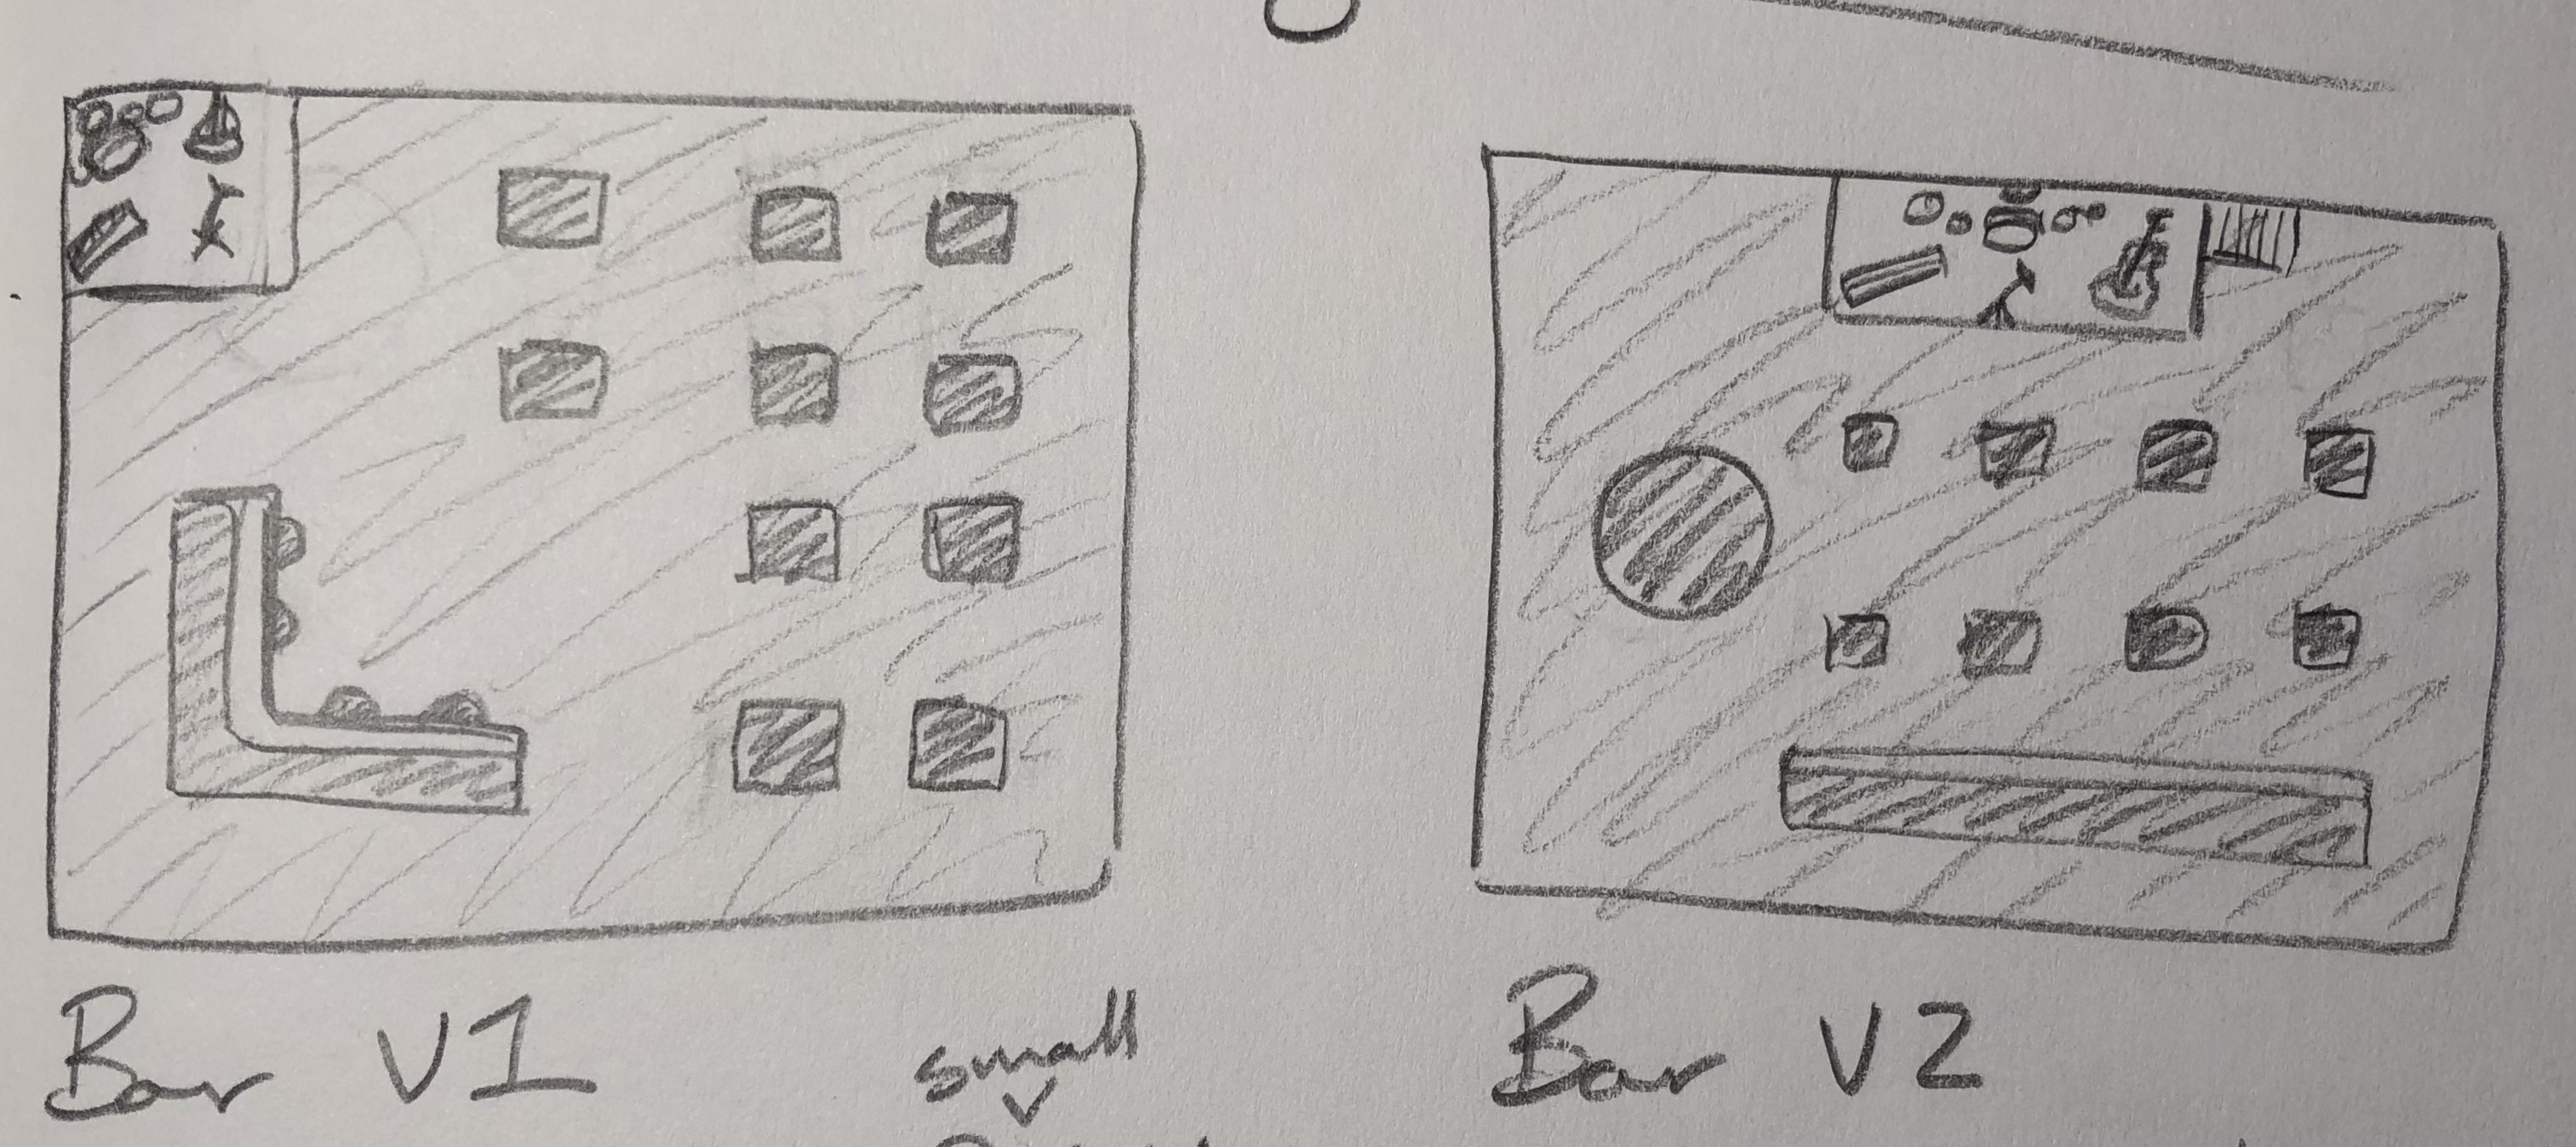 Bar V1
small
Bar V2